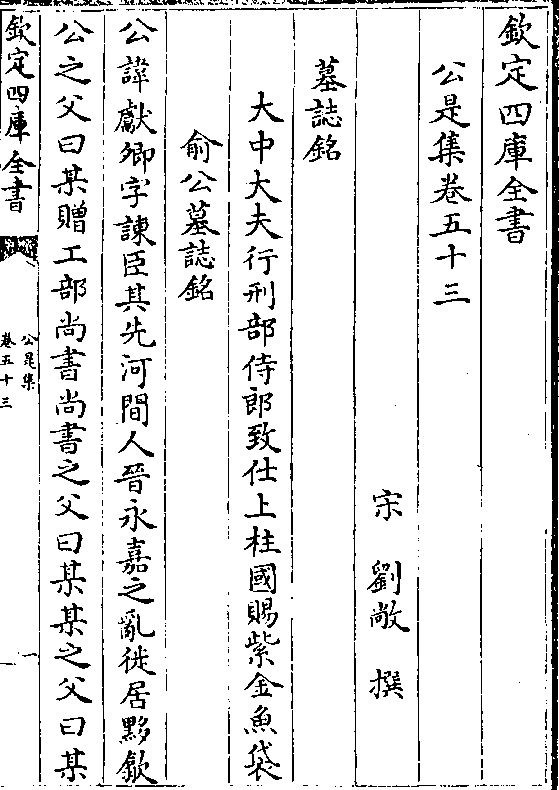 欽定四庫全書
公是集卷五十三
宋 劉敞 撰
墓誌銘
大中大夫行刑部侍郎致仕上柱國賜紫金魚袋
俞公墓誌銘
公諱獻卿字諫臣其先河間人晉永嘉之亂徙居黟歙
公之父曰某贈工部尚書尚書之父曰某某之父曰某
欽定四庫全書
公是集
卷五十三
一